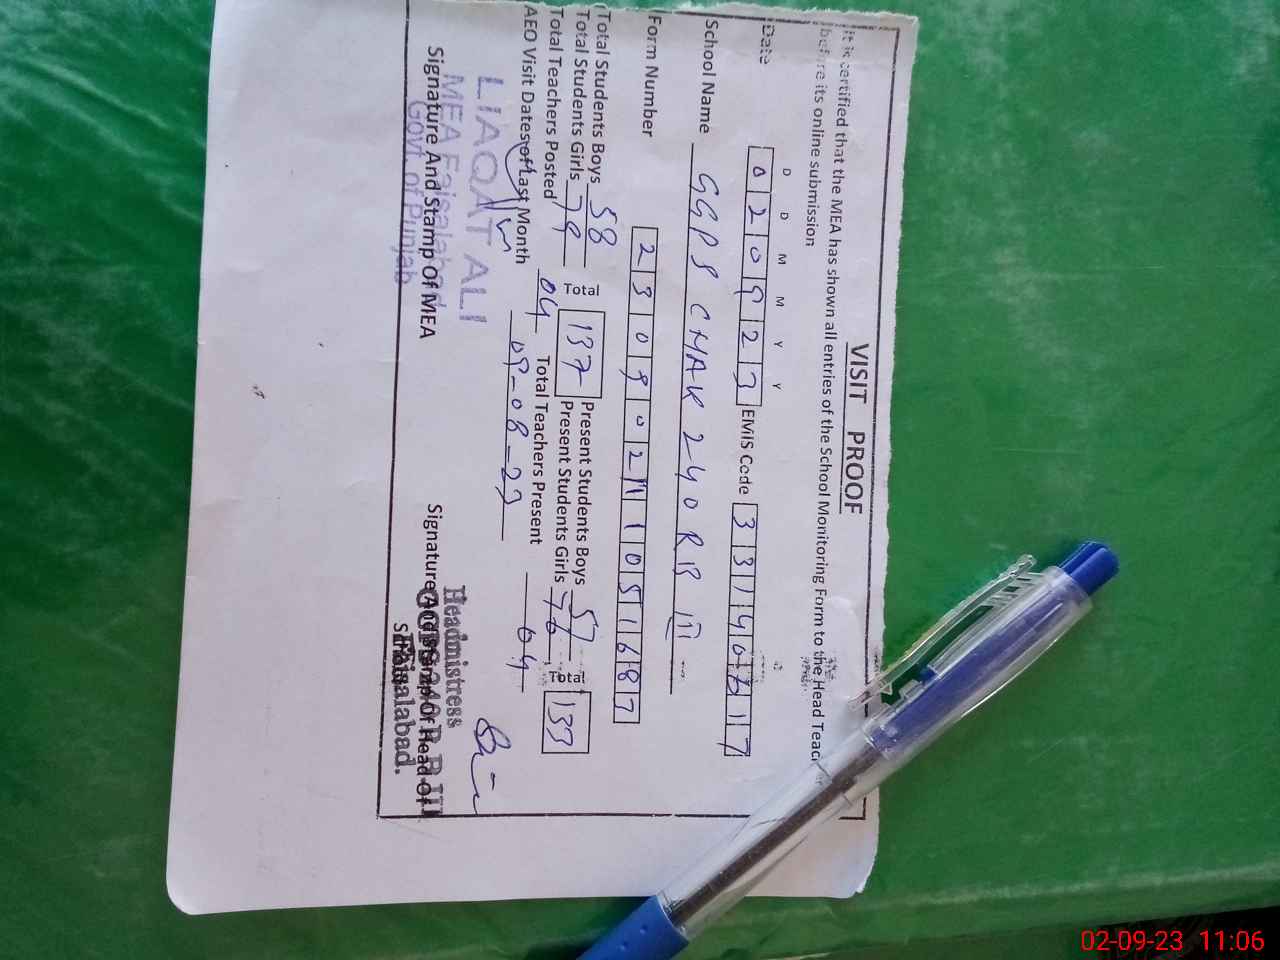 VISIT PROOF
It is certified that the MEA has shown all entries of the School Monitoring Form to the Head Teacher
before its online submission
D D M M Y Y
Date 0 2 0 9 2 3 EMIS Code 3 3 1 4 0 6 1 7
School Name GGPS CHAK 240 RB III
Form Number 2 3 0 9 0 2 1 1 0 5 1 6 8 7
Total Students Boys 58 Total 137 Present Students Boys 57 Total 133
Total Students Girls 79 Present Students Girls 76
Total Teachers Posted 04 Total Teachers Present 04
AEO Visit Dates of Last Month 09-08-23
LIAQAT ALI
MEA Faisalabad
Govt. of Punjab
Signature And Stamp Of MEA
Headmistress
240 R.B III
Faisalabad.
Signature And Stamp Of Head Of
02-09-23 11:06